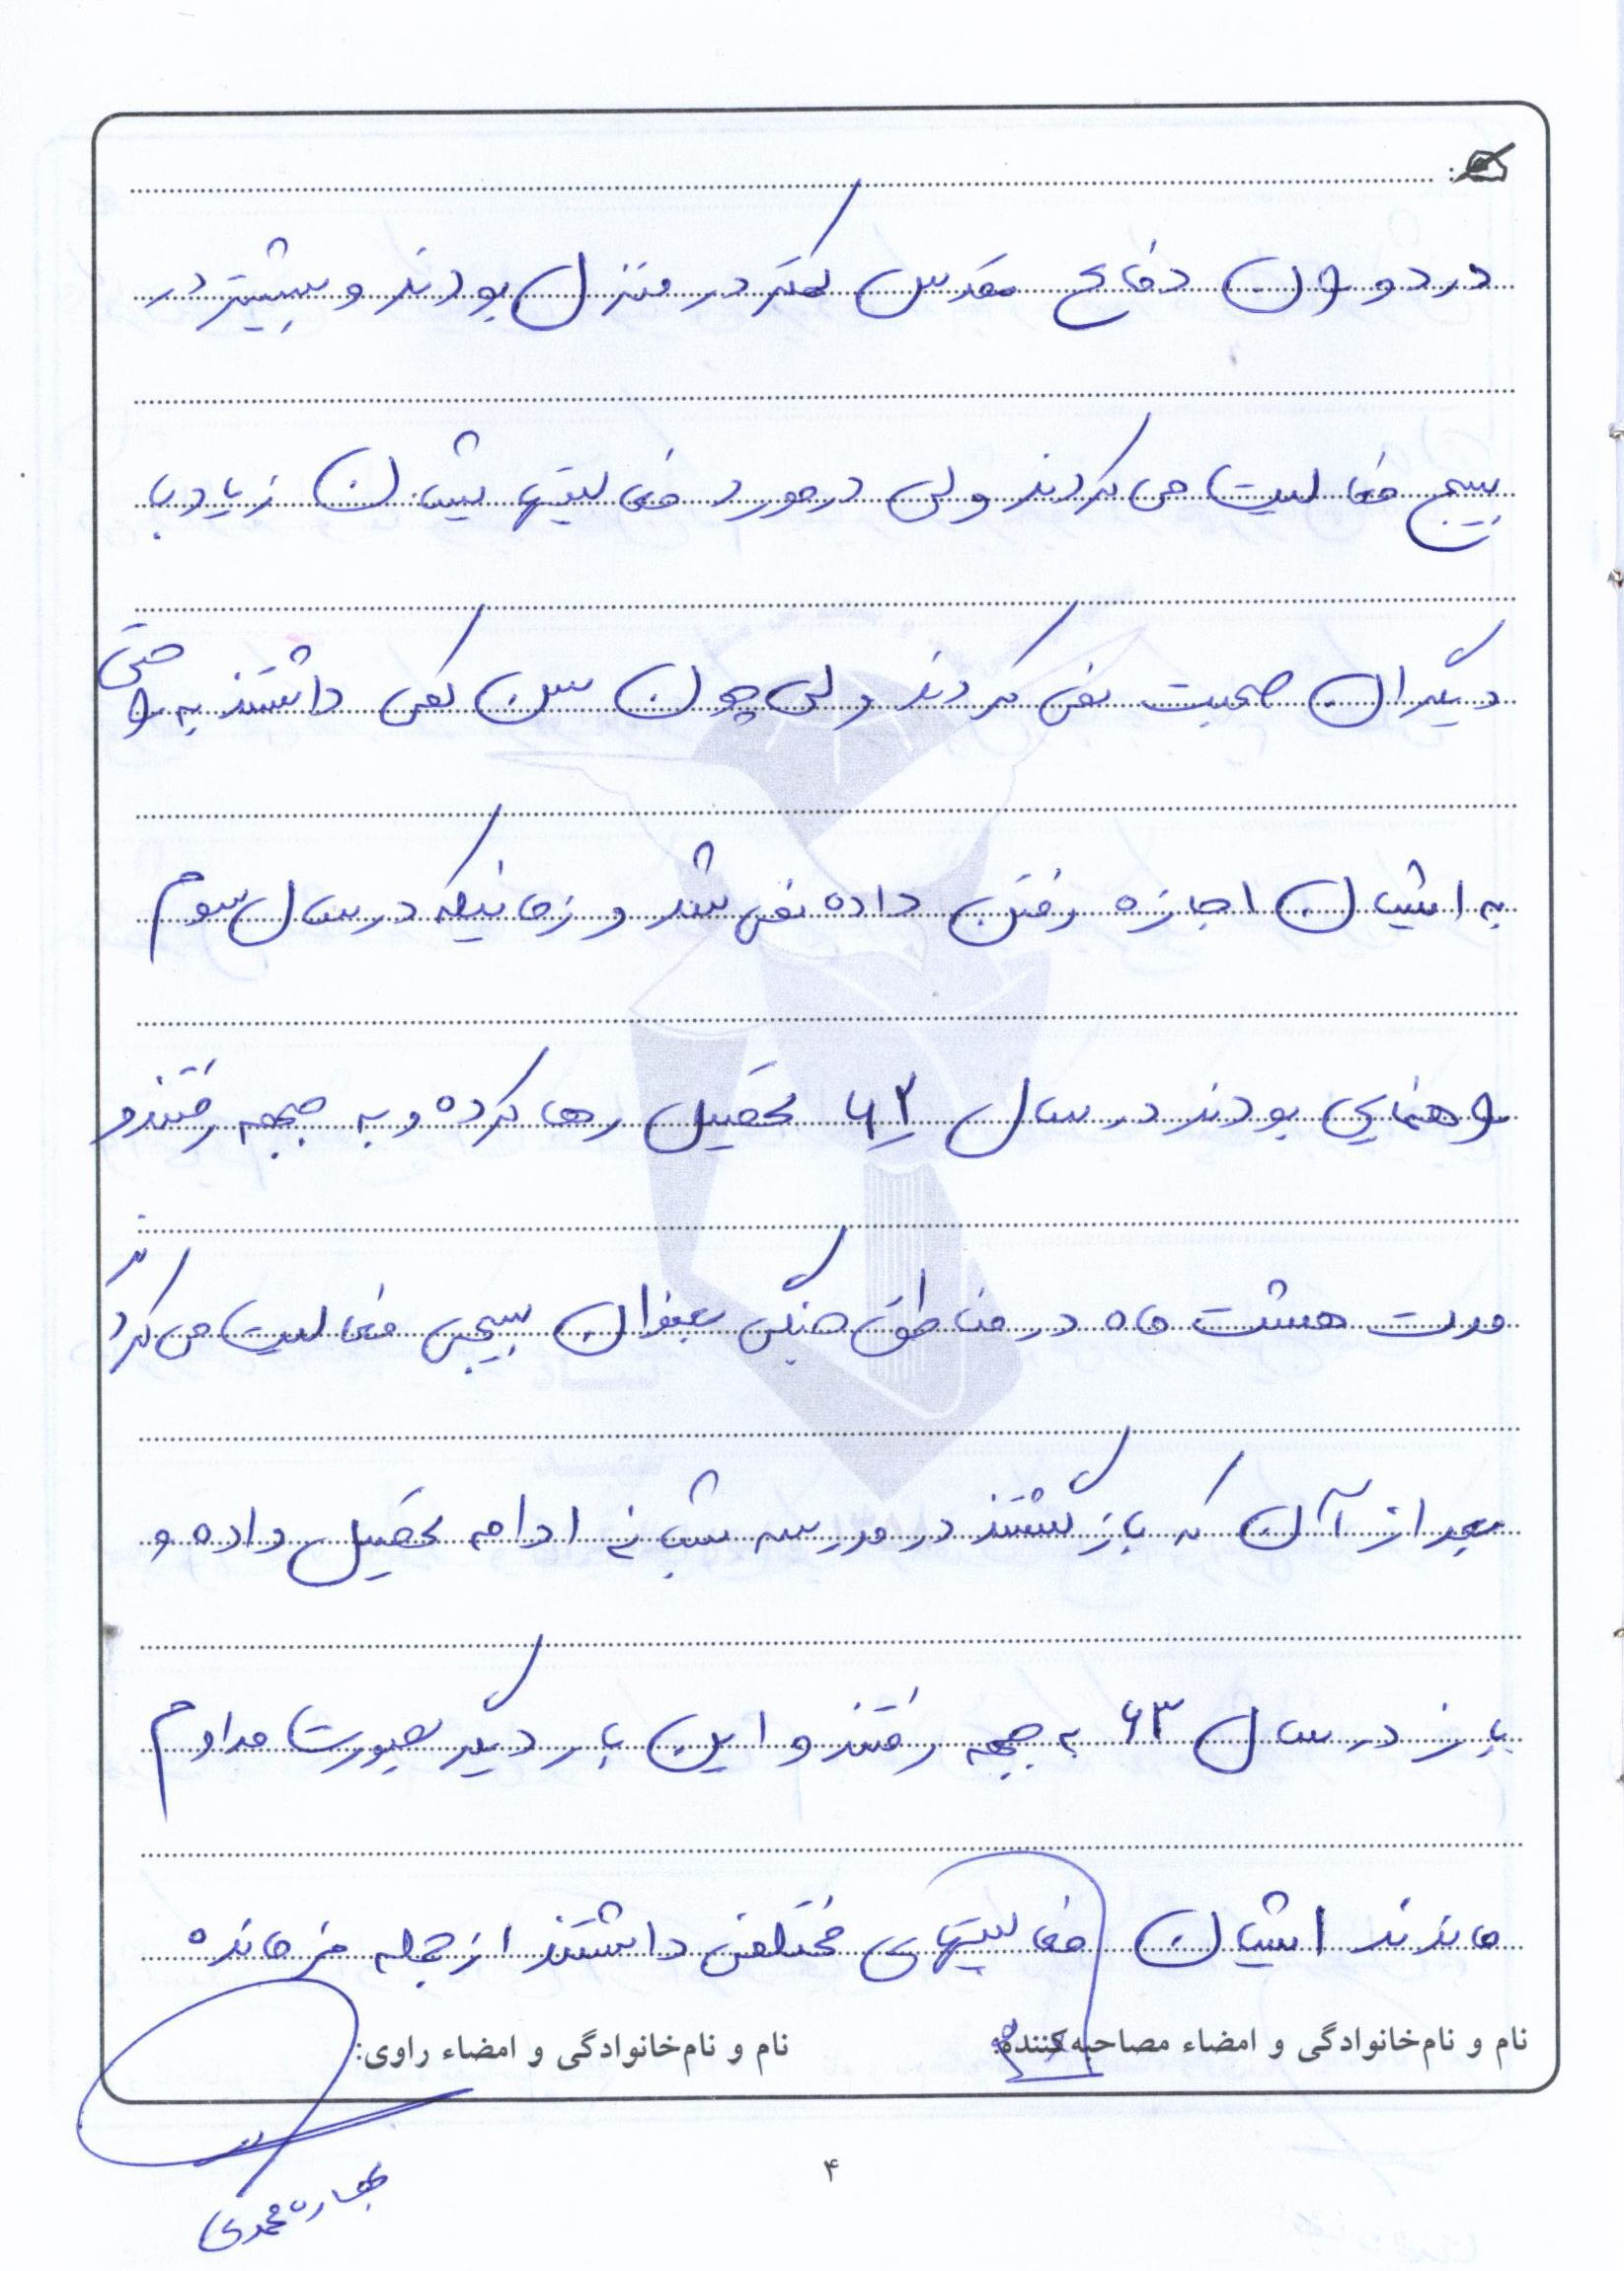 در دوران دفاع مقدس کمتر در منزل بودند و بیشتر در
بسیج فعالیت می کردند ولی در مورد فعالیتهایشان زیاد با
دیگران صحبت نمی کردند ولی چون سن کمی داشتند به راحتی
به ایشان اجازه رفتن داده نمی شد و زمانیکه در سال سوم
راهنمایی بودند در سال ۶۲ تحصیل رها کرده و به جبهه رفتند و
مدت هشت ماه در مناطق جنگی بعنوان بسیجی فعالیت می کردند
بعد از آن که بازگشتند در مدرسه شبانه ادامه تحصیل داده و
باز در سال ۶۳ به جبهه رفتند و این بار دیگر بصورت مداوم
ماندند ایشان فعالیتهای مختلفی داشتند از جمله فرمانده
نام و نام‌خانوادگی و امضاء مصاحبه‌کننده:
نام و نام‌خانوادگی و امضاء راوی:
بهاره محمدی
۴